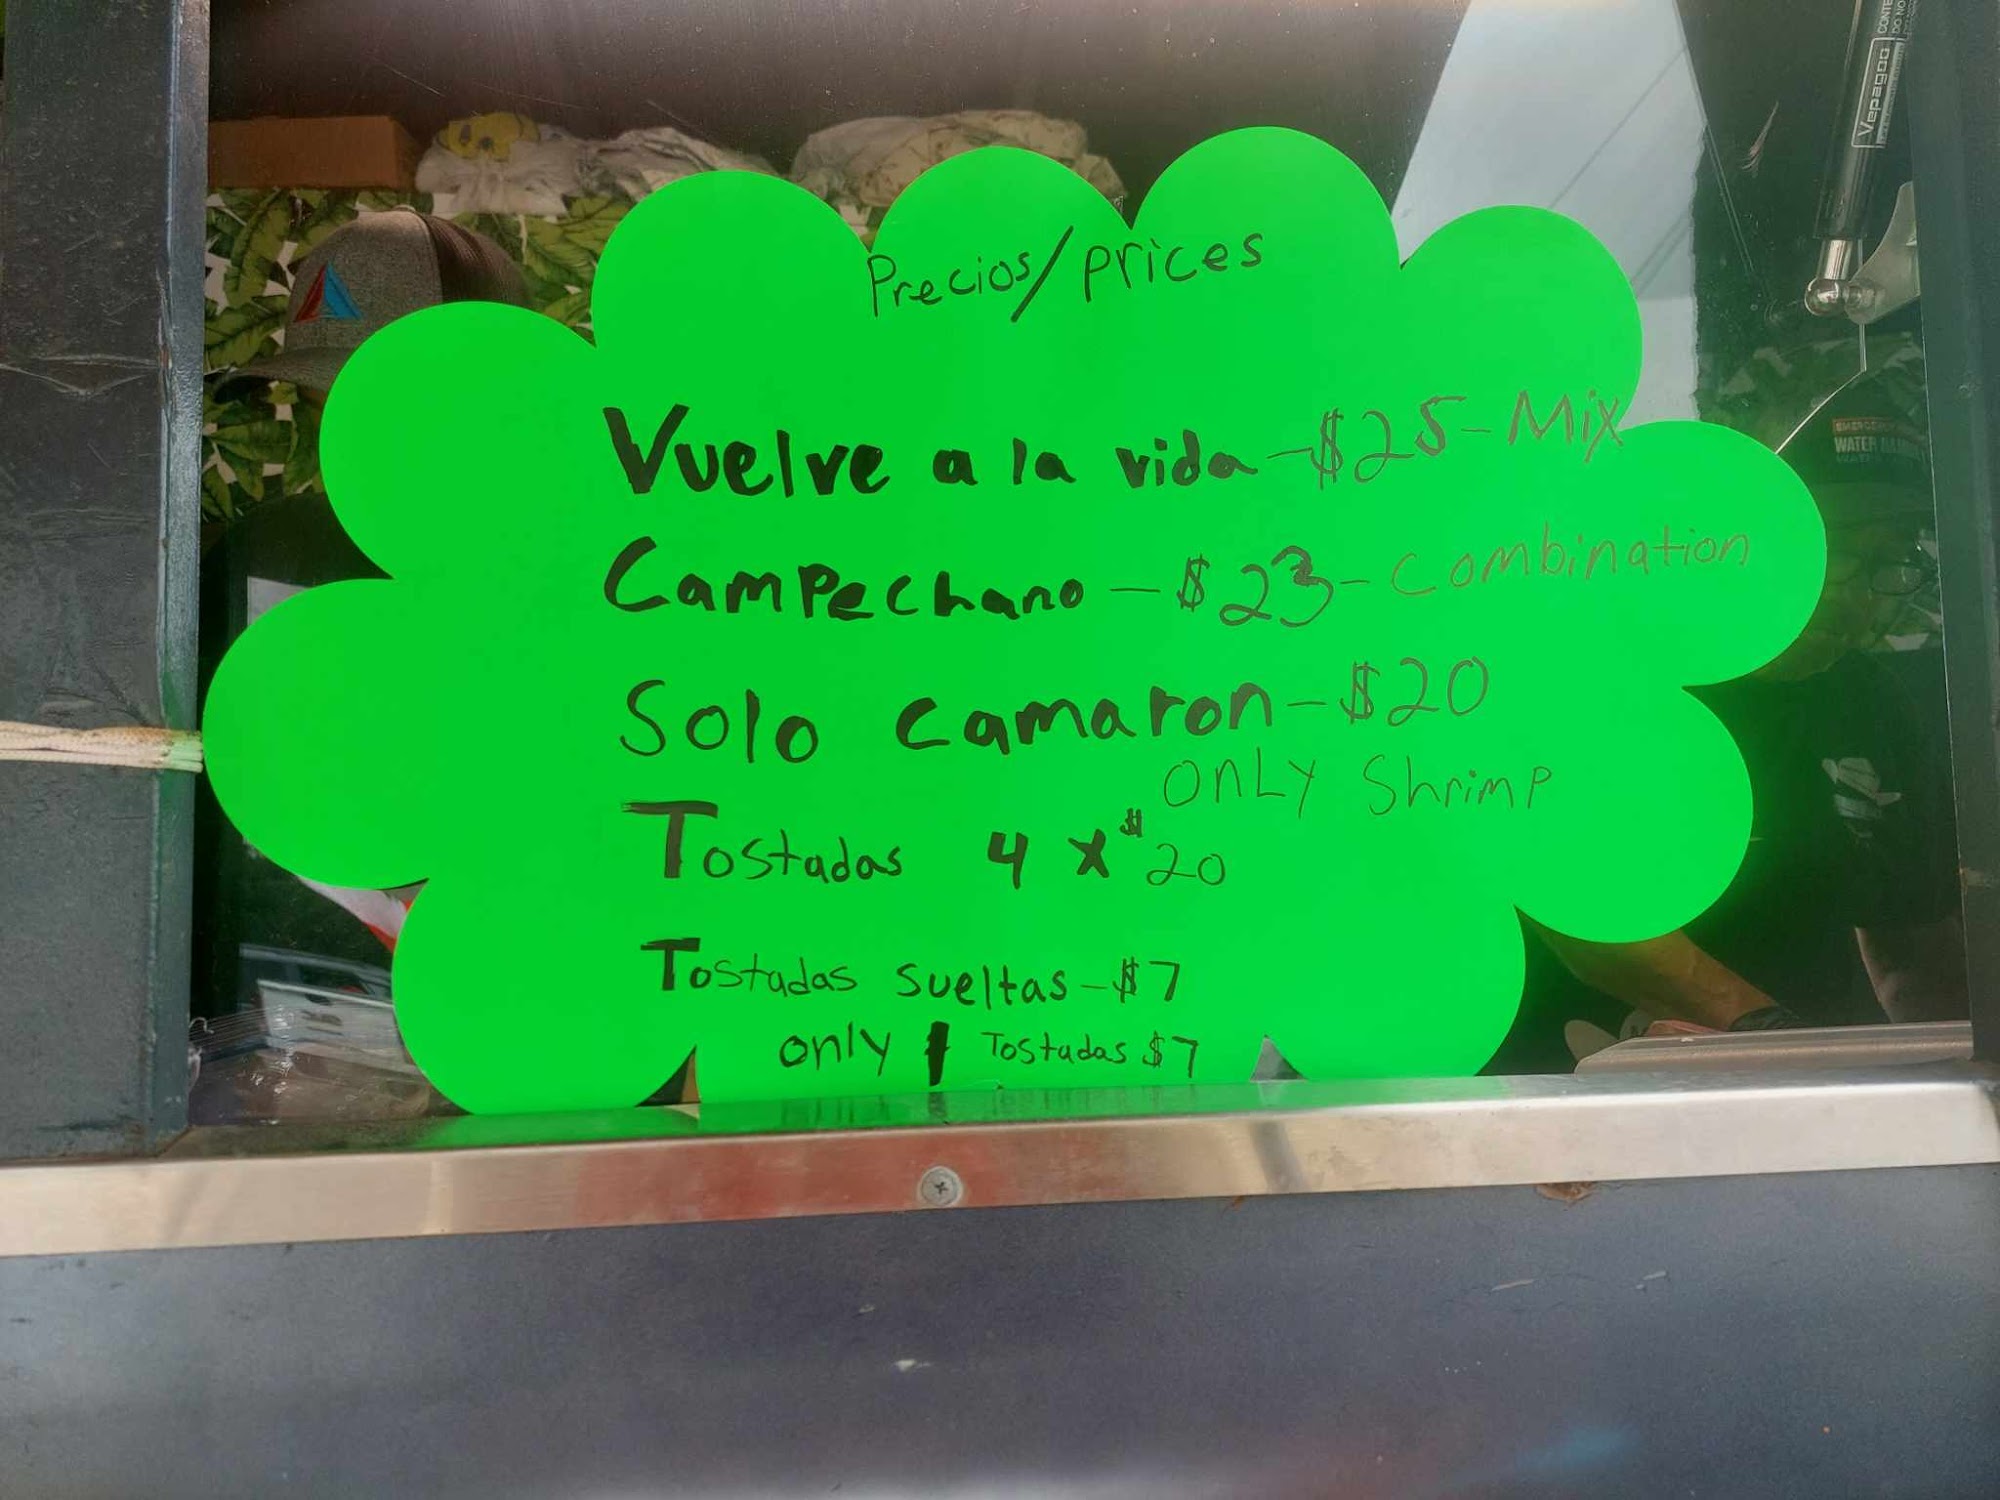 Precios/prices
Vuelve a la vida-$25-Mix
Campechano-$23-combination
Solo camaron-$20
only Shrimp
Tostadas 4 x $20
Tostadas sueltas-$7
only 1 Tostadas $7
Vepagoo
WATER